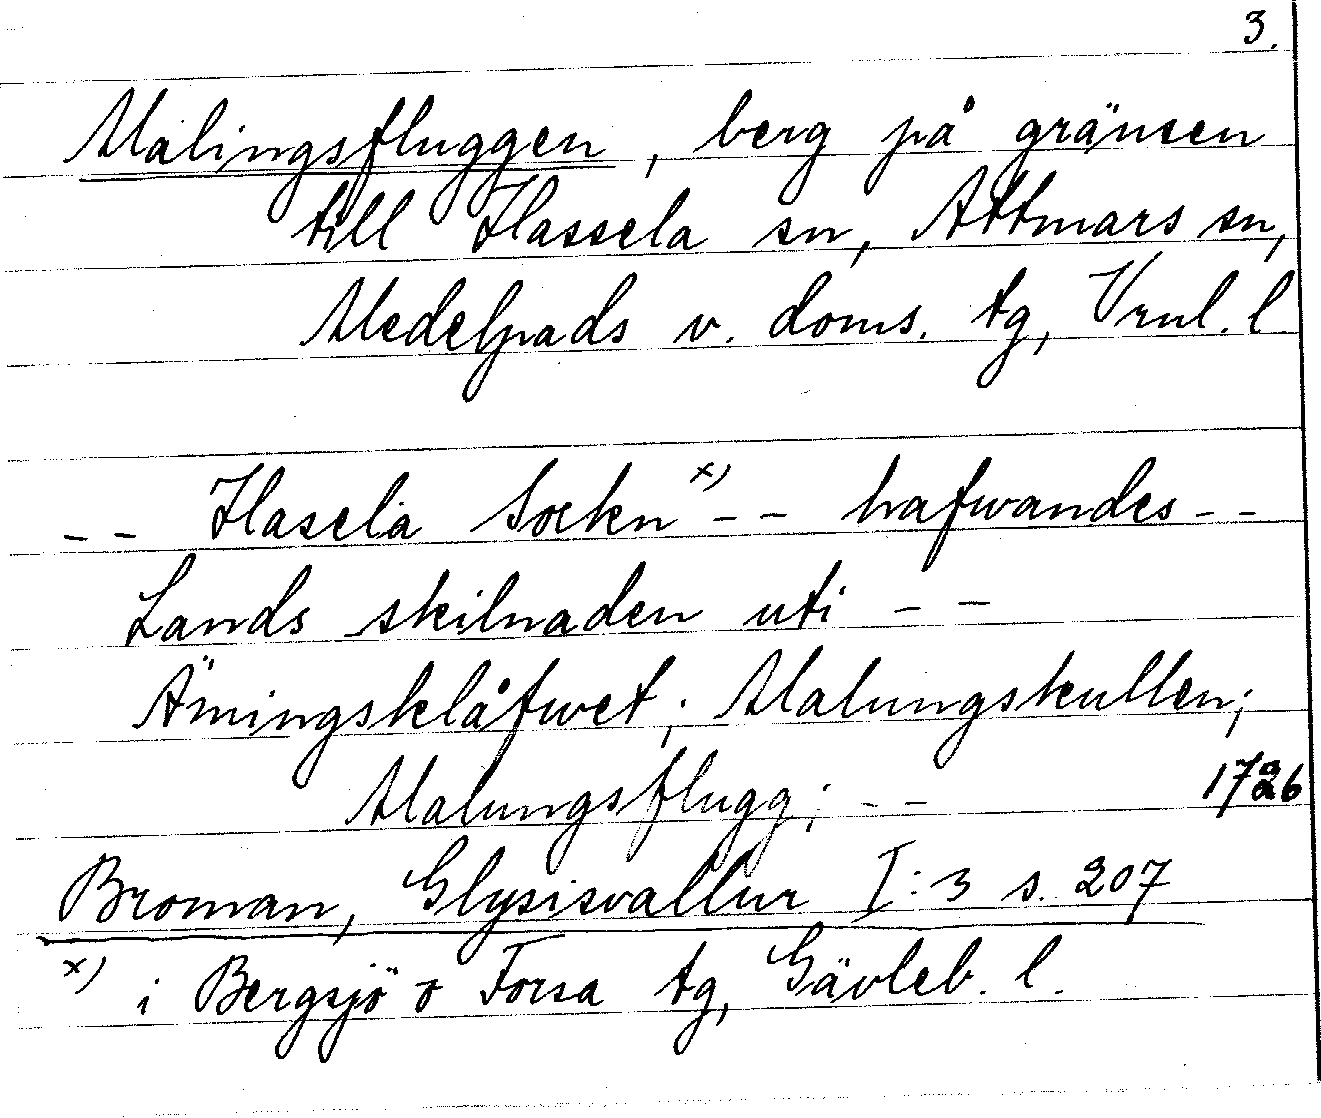 3.
Malingsfluggen, berg på gränsen
till Hassela sn, Attmars sn,
Medelpads v. doms. tg, Vrnl. l
-- Hasela Sockn x) -- hafwandes --
Lands skilnaden uti --
Ämingsklåfwet; Malungskullen;
Malungsflugg; -- 1726
Broman, Glysisvallur I:3 s. 207
x) i Bergsjö o Forsa tg, Gävleb. l.